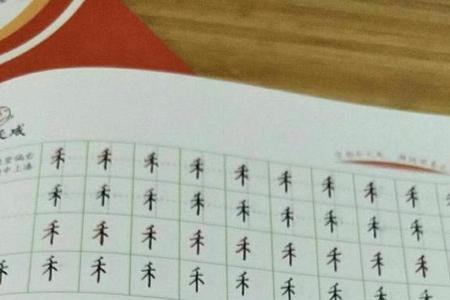 禾 禾 禾 禾 禾 禾 禾 禾 禾 禾
禾 禾 禾 禾 禾 禾 禾 禾 禾 禾
禾 禾 禾 禾 禾 禾 禾 禾 禾 禾
禾 禾 禾 禾 禾 禾 禾 禾 禾 禾